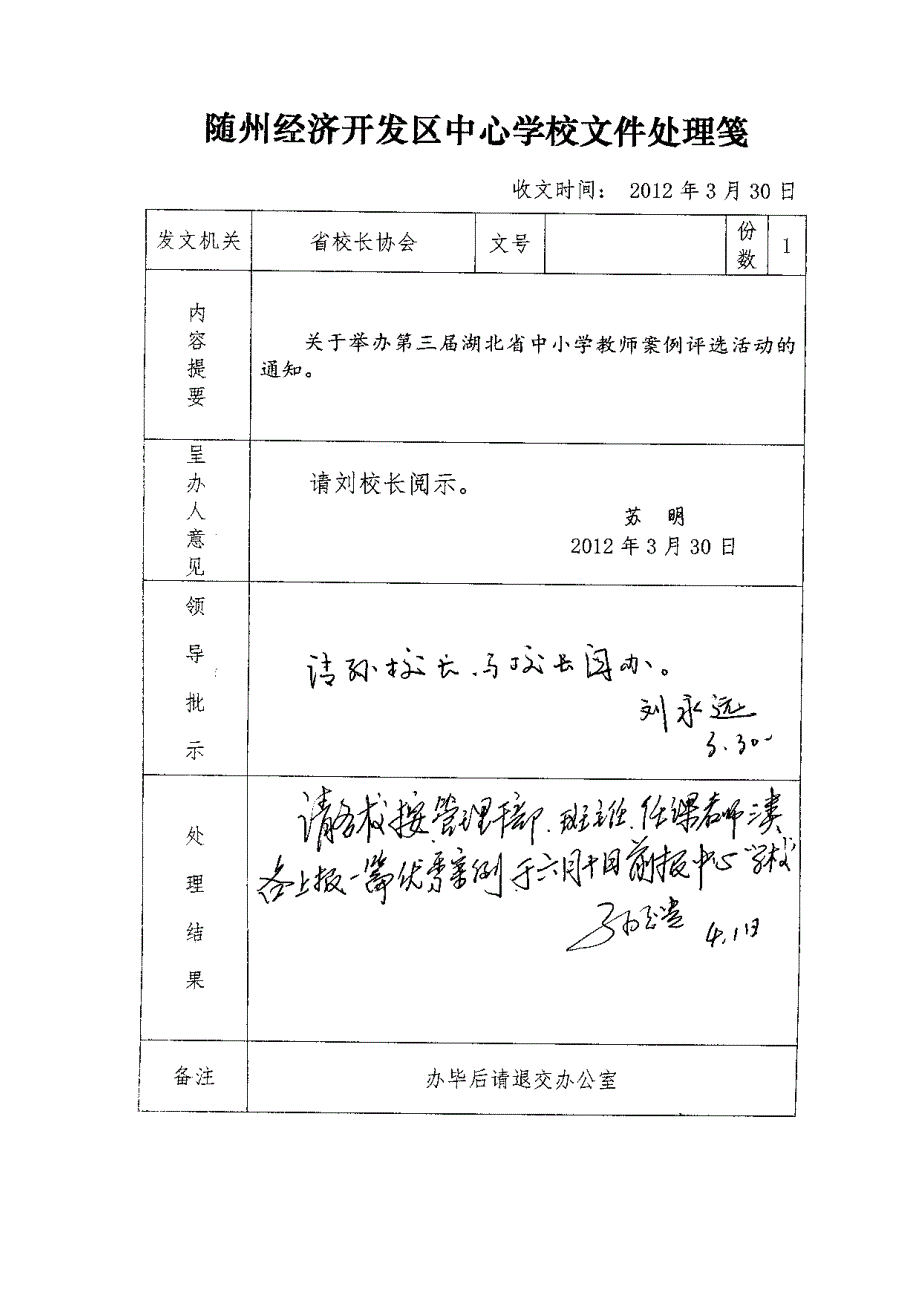 随州经济开发区中心学校文件处理笺
收文时间： 2012年3月30日
发文机关 省校长协会 文号 份数 1
内容提要
关于举办第三届湖北省中小学教师案例评选活动的
通知。
呈办人意见
请刘校长阅示。
苏 明
2012年3月30日
领导批示
请孙校长、马校长阅办。
刘永远
3.30
处理结果
请各校按管理干部、班主任、任课老师三类
各上报一篇优秀案例于六月十日前报中心学校
4.1日
备注 办毕后请退交办公室